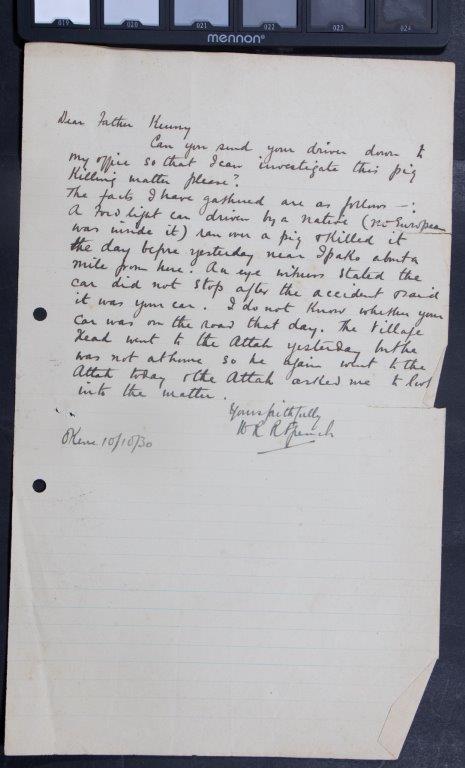 019 020 021 022 023 024
mennon
Dear Father Kenny
Can you send your driver down to
my office so that I can investigate this pig
killing matter please?
The facts I have gathered are as follows —:
A Ford light car driven by a native (no European
was inside it) ran over a pig & killed it
the day before yesterday near Ipako about a
mile from here. An eye witness stated the
car did not stop after the accident & said
it was your car. I do not know whether your
car was on the road that day. The Village
Head went to the Attah yesterday but he
was not at home so he again went to the
Attah today & the Attah asked me to look
into the matter.
Yours faithfully
Okene 10/10/30